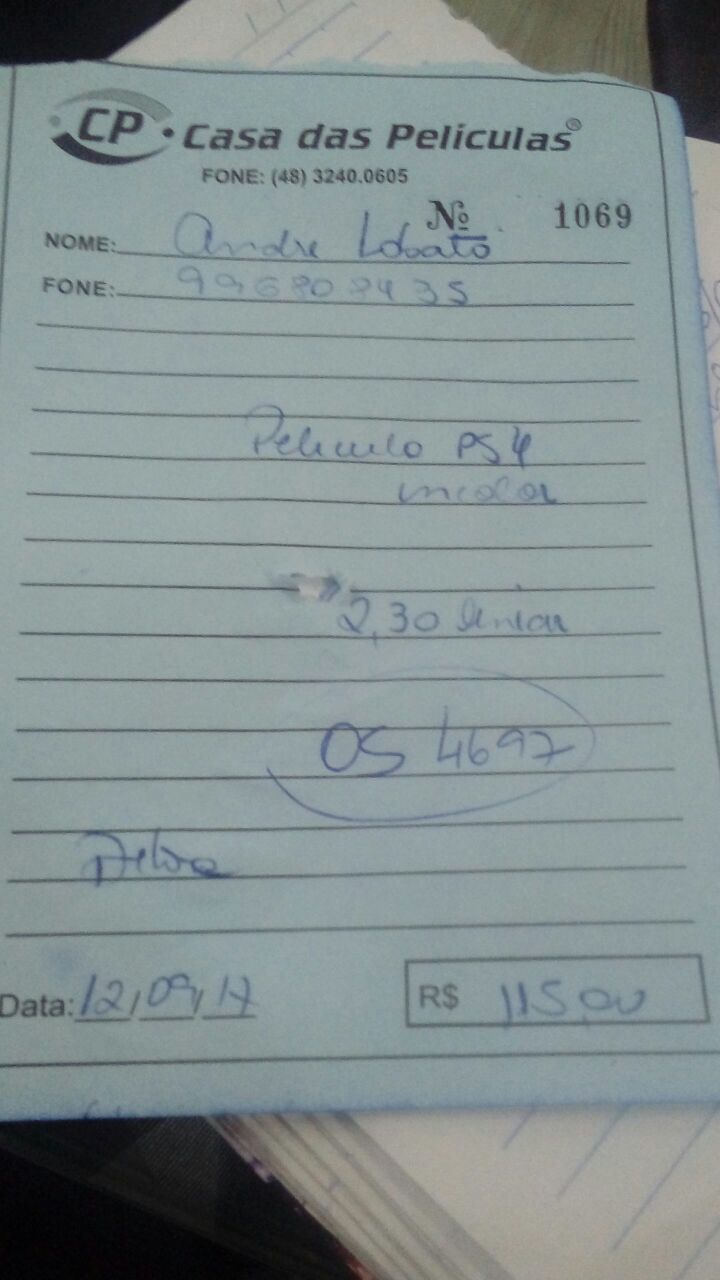 CP • Casa das Películas®
FONE: (48) 3240.0605
Nº 1069
NOME: Andre Lobato
FONE: 996808435
Pelicula PS4
incolor
2,30
OS 4697
Data: 12/09/17
R$ 115,00